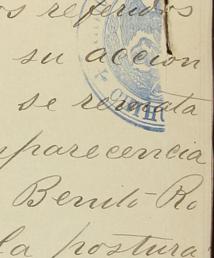 os referidos
su acción
se remata
mparecencia
Benito Ro
la postura